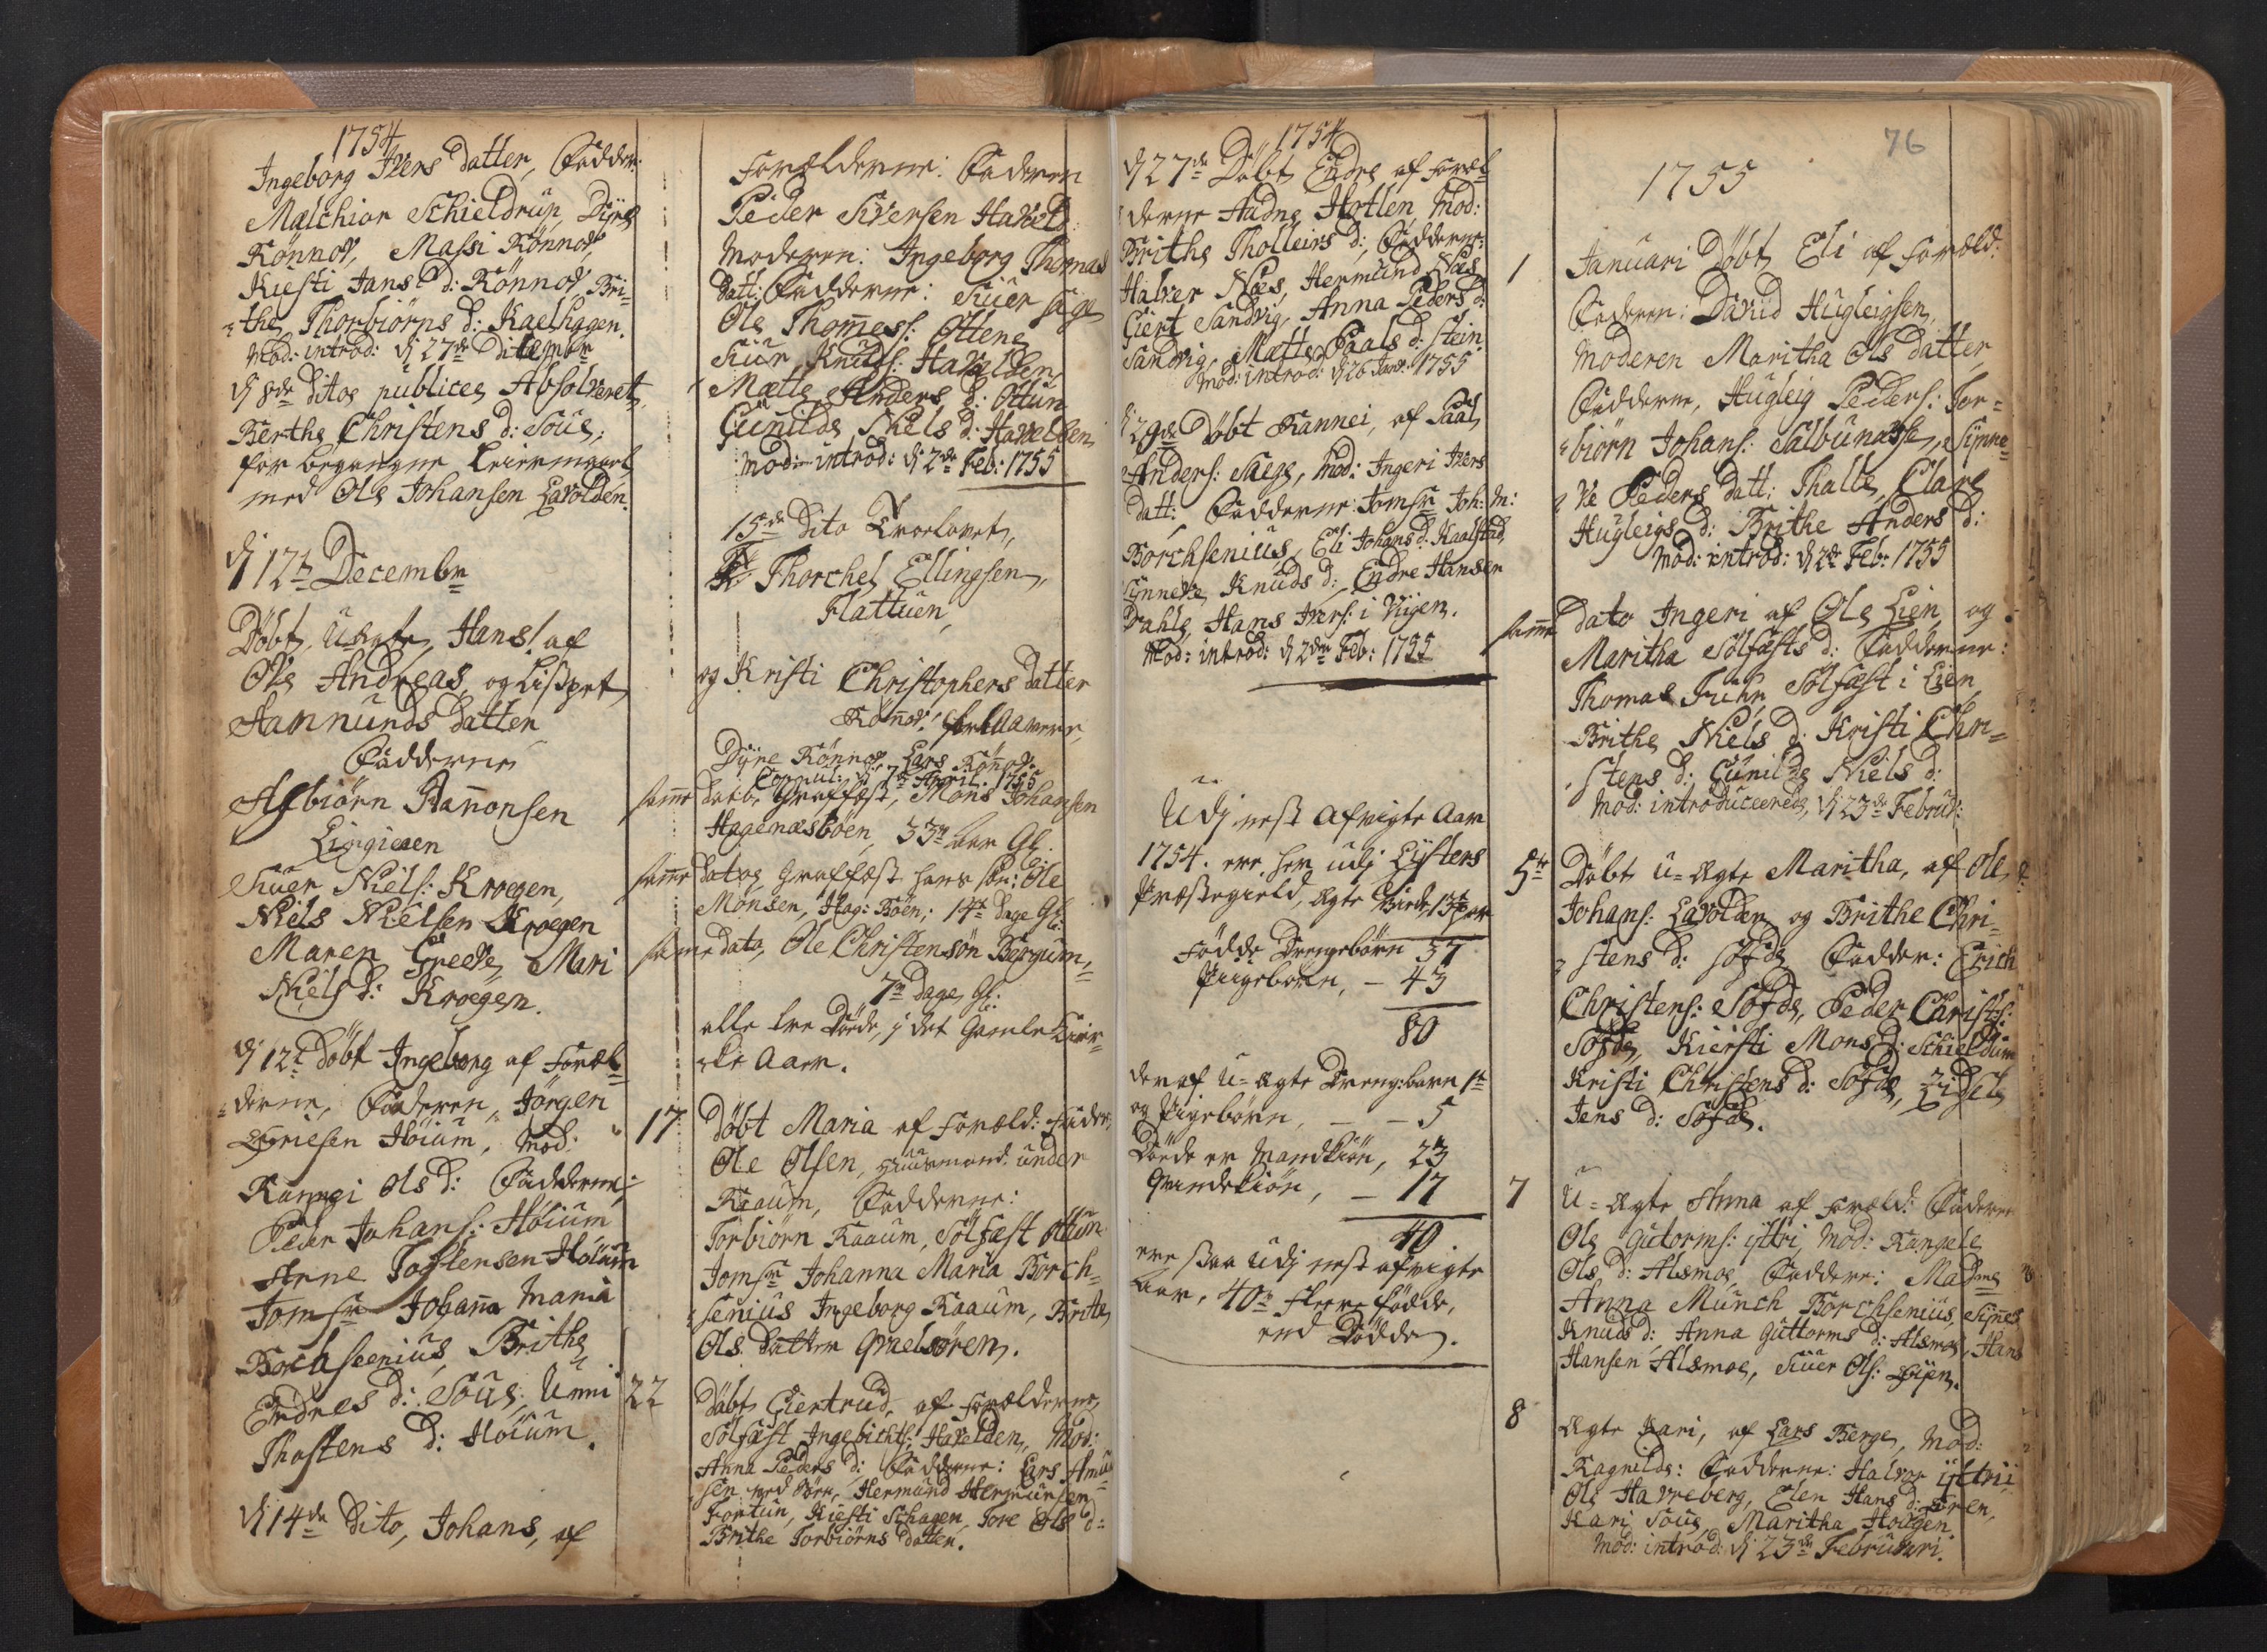 1754
Ingeborg Ivers datter, Fadder:
Melchior Schieldrup, Dÿre
Rönnow, Massi Rönnow,
Kiesti Jans d: Rönnow, Bri¬
the Thorbiörns d: Kaelhagen.
Mod: introd: d 27de Decembr
d 8de ditos publice Absolveret
Berthe Christens d: Soüe,
for begangne Leiermaal
med Ole Johansen Lavolden.
d 12te Decembr
Döbt uægte Hans! af
Ole Andreas og Lisbet
Aamunds datter
Fadderne
Asbiörn
Siuer Niels: Kroegen,
Niels Nielsen Kroegen
Maren Greeve, Mari
Niels d: Kroegen.
d 12te Döbt Ingeborg af Foræl¬
derne, Faderen, Jörgen
Höium, Mod:
Rannei Ols d: Fadderne:
Peder Johans: Höium
Arne Tostensen Höium
Jomfr Johanna Maria
Borchsenius, Brithe
Endres d: Soüe, Unni
Thostens d: Höium.
d 14de dito, Johans, af
Forælderne: Faderen
Peder Siversen
Moderen: Ingeborg Thomas
datt: Fadderne: Siuer
Ole Thommess: Ottene
Siur Knuds: Havelden
Mætte Anders d: Ottun
Gunilde Niels d: Havelden
Mod: introd: d 2de Feb: 1755
15de dito Trolovet,
Thorchel Ellingsen,
Flattuen,
og Kristi Christophers datter
Rönnow!
Dÿre Rönnow, Lars Rönnow.
Copul: d 7de April: 1755
samme dato Graffæst, Mons Johansen
Hagenæsböen, 33te Aar Gl.
samme dato Graffæst hans sön: Ole
Monsen, Hag: Böen; 14te dage Gl:
samme dato, Ole Christensön Bergum,
7 dage Gl:
alle tre döde, i det Gamle Kir¬
cke Aar.
17 Döbt Maria af Foræld: Fader,
Ole Olsen, Huusmand under
Kaaum, Fadderne:
Torbiörn Kaaum, Sölfæst Ottun
Jomfr Johanna Maria Borch¬
senius Ingeborg Kaaum, Brite
Ols datter Qvaelsören.
22 Döbt Giertrud, af Forælderne,
Sölfæst Ingebrichts: Havelden, Mod:
Anna Peders d: Fadderne: Lars Amun
sen ved Hermund Hermunsen
Fortun, Kiesti Schagen, Tore Ols d:
Brithe Torbiörns datter.
1754
d 27de Döbt Endre af Foræl
derne Aadne Hotlen, Mod:
Brithe Tholleivs d: Fadderne:
Halver Næs, Hermund Næs,
Giert Sandvig, Anna Peders d:
Sandvig, Mætte Paals d: Stein
Mod: introd: d 26 Janv: 1755
d 29de Döbt Rannei, af Paal
Anders: Mod: Ingeri Ivers
datt: Fadderne: Jomfr Joh: M:
Borchsenius, Eli Johans d: Kaalstad,
Synneve Knuds d: Endre Hansen
Dahle, Hans Ivers: i Vigen.
Mod: introd: d 2den Feb: 1755
Udj nest Afvigte Aar
1754. ere her udj Lÿsters
Præstegield, ægte Viede 13 Par
Födde Drengebörn 37
Pigebörn, – 43
80
deraf U=ægte Drenge:barn 1te
og Pigebörn, – – 5
Döde er Mandkiön, 23
Qvindekiön, – 17
40
ere saa udj nest afvigte
Aar, 40 fleere födde,
end Dödde.
76
1755
1 Januari Döbt Eli af Foræld:
Faderen: David Hugleigsen,
Moderen Maritha Ols datter
Fadderne, Hugleig Peders: Tor¬
biörn Johans: Sÿnne¬
ve Peders datt: Clare
Hugleigs d: Brithe Anders d:
Mod: introd: d 2de Feb: 1755
samme dato Ingeri af Ole Lien og
Maritha Sölfæsts d: Fadderne:
Thomas Sölfæst i Lien
Brithe Niels d: Kristi Chri¬
stens d: Gunilde Niels d:
Mod: introduceerede, d 23de Februar:
5te Döbt u=ægte Maritha, af Ole
Johans: Lavolden og Brithe Chri¬
stens d: Fadder: Erich
Christens: Peder Christs:
Kiersti Mons d: Schieldum
Kristi Christens d: Zidsele
Jens d:
7 U=ægte Anna af Foræld: Faderen
Ole Gutorms: ÿttri, Mod: Rangele
Ols d: Alsmoe, Faddere: Madme
Anna Munch Borchsenius, Sÿnneve
Knuds d: Anna Guttorms d: Alsmoe, Hans
Hansen Alsmoe, Siuer Ols:
8 Ægte Kari, af Lars Berge, Mod:
Ragnilde: Fadderne: Halvor ÿttri,
Ole Havreberg, Elen Hans d:
Kari Soüe, Maritha Hougen.
Mod: introd: d 23de Februari.